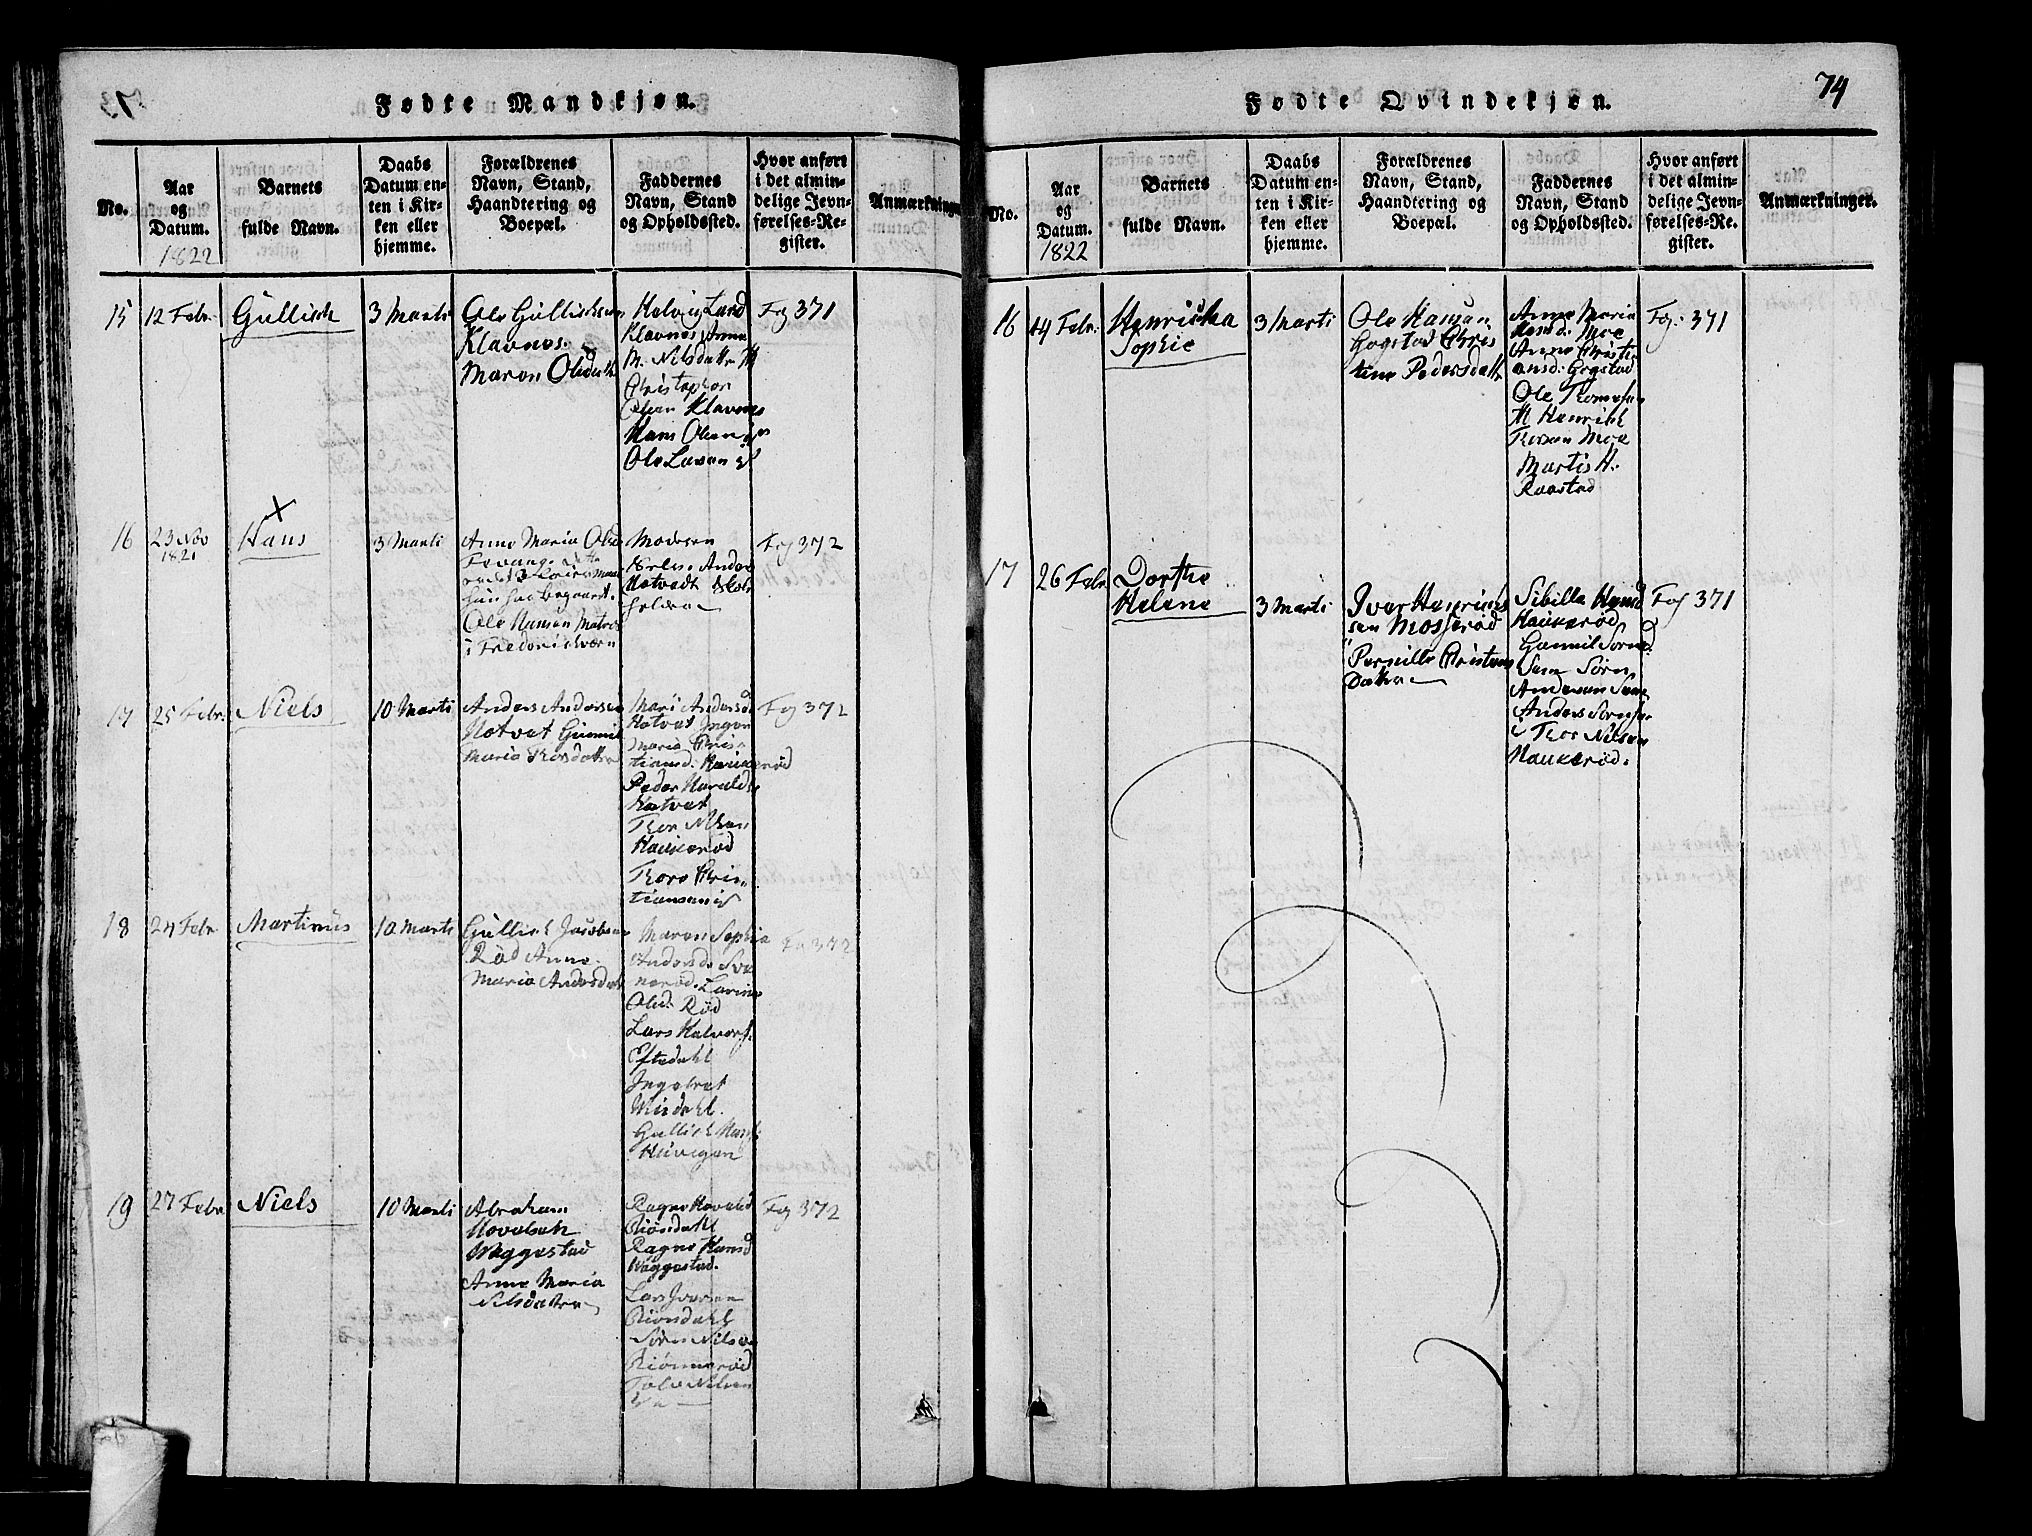 Fødte Mandkjøn.
No.
Aar
og
Datum.
1822
Barnets
fulde Navn.
Daabs
Datum en-
ten i Kir-
ken eller
hjemme.
Forældrenes
Navn, Stand,
Haandtering og
Boepæl.
Faddernes
Navn, Stand
og Opholdssted.
Hvor anført
i det almin-
delige Jevn-
førelses-Re-
gister.
Anmærkninge
15
12 Febr.
Gullich
3 Marti
Ole Gullichsen
Klavnes.
Maren Olsdatt
Helvig Lars
Klavnes Anne
M. Nilsdattr
Christopher
Olsen Klavnes
Hans Olsen
Ole Larsen
Fog 371
16
23 Nov
1821
Hans
3 Marti
Anne Maria Olsd
Ole Hansen Matros
i Frederichsværn
Anders
Hotvedt
Fog 372
17
25 Febr.
Niels
10 Marti
Anders Andersen
Hotvet Gunnil
Maria Thorsdatter
Mari Andersd
Hotvet Inger
Maria Chris-
tiansd. Haukerød
Peder Harald
Hotvet
Thor Nilsen
Haukerød
Thore Chris-
tiansen
Fog 372
18
24 Febr
Martinus
10 Marti
Gullich Jacobsen
Rød Anne
Maria Andersdatt
Maren Sophie
Andersd
Olsd. Rød
Lars Halvors
Eftedahl
Gullich Hans
Fog 372
19
27 Febr
Niels
10 Marti
Abraham
Hovelsen
Weggestad
Anne Maria
Nilsdatter
Ragne Hovelsd
Biøndahl
Ragne Hansd
Weggestad.
Lars Iversen
Biøndahl
Søren Nilsen
Fog 372
74
Fødte Qvindekjøn.
No.
Aar
og
Datum.
1822
Barnets
fulde Navn.
Daabs
Datum en-
ten i Kir-
ken eller
hjemme.
Forældrenes
Navn, Stand,
Haandtering og
Boepæl.
Faddernes
Navn, Stand
og Opholdssted.
Hvor anført
i det almin-
delige Jevn-
førelses-Re-
gister.
Anmærkninger.
16
14 Febr.
Henricha
Sophie
3 Marti
Ole Hansen
Gogstad Chris
tine Pedersdatt
Anne Maria
Hansd. Moe
Anne Christi
ansd. Gogstad
Ole Thomesen
Henrich
Thorsen Moe
Martis H.
Raastad
Fog. 371
17
26 Febr
Dorthe
Helene
3 Marti
Iver Henrichs
sen Mosserød
Pernille Christens
Datter
Sibilla Hansd
Haukerød
Gunnil Sørnd.
Sem Sørn
Andersen Sem
Anders Sørnsen
Thor Nilsen
Haukerød.
Fog 371